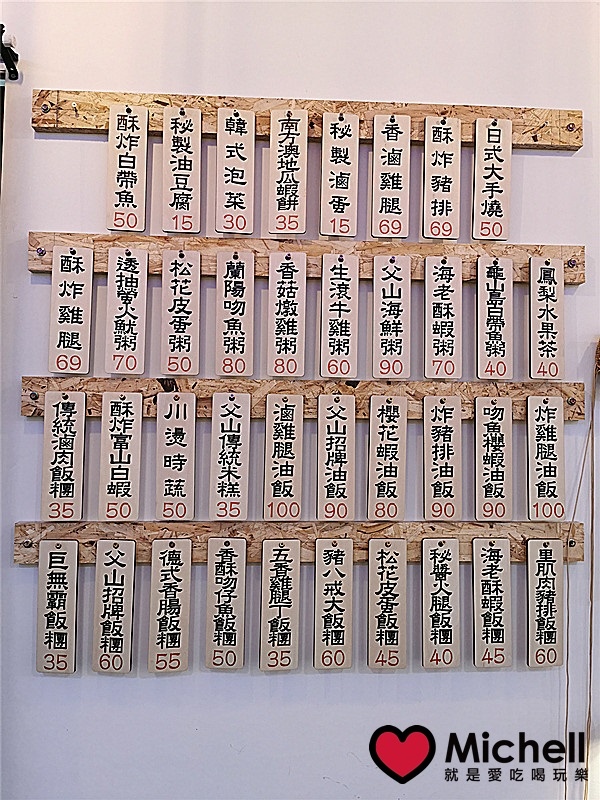 酥炸白帶魚 50
秘製油豆腐 15
韓式泡菜 30
南方澳地瓜蝦餅 35
秘製滷蛋 15
香滷雞腿 69
酥炸豬排 69
日式大手燒 50
酥炸雞腿 69
透抽螢火魷粥 70
松花皮蛋粥 50
蘭陽吻魚粥 80
香菇燉雞粥 80
生滾牛雞粥 60
父山海鮮粥 90
海老酥蝦粥 70
龜山島白帶魚粥 40
鳳梨水果茶 40
傳統滷肉飯糰 35
酥炸富山白蝦 50
川燙時蔬 50
父山傳統米糕 35
滷雞腿油飯 100
父山招牌油飯 90
櫻花蝦油飯 80
炸豬排油飯 90
吻魚櫻蝦油飯 90
炸雞腿油飯 100
巨無霸飯糰 35
父山招牌飯糰 60
德式香腸飯糰 55
香酥吻仔魚飯糰 50
五香雞腿丁飯糰 35
豬八戒大飯糰 60
松花皮蛋飯糰 45
秘醬火腿飯糰 40
海老酥蝦飯糰 45
里肌肉豬排飯糰 60
Michell
就是愛吃喝玩樂